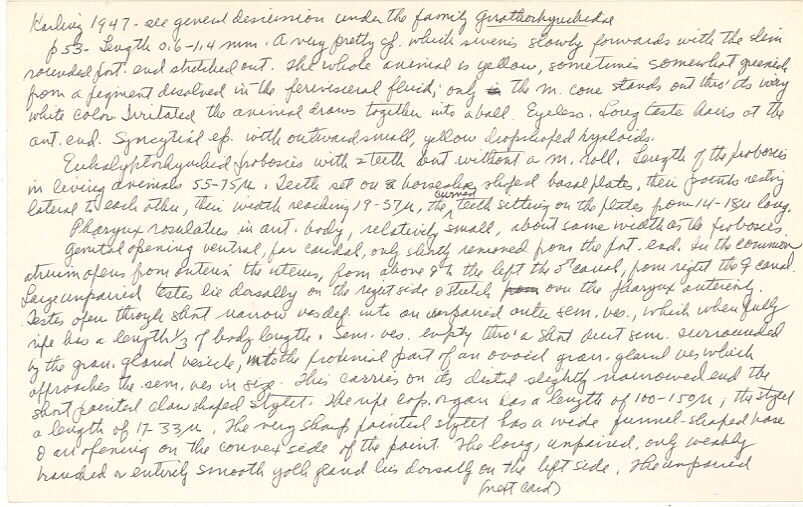 Karling 1947 - see general discussion under the family Gnathorhynchidae
p 53 - Length 0.6-1.4 mm. A very pretty sp. which swims slowly forwards with the slim
rounded post. end stretched out. The whole animal is yellow, sometimes somewhat greenish
from a pigment disolved in the perivisceral fluid; only the m. cone stands out thro' its very
white color. Irritated the animal draws together into a ball. Eyeless. Long taste hairs at the
ant. end. Syncytial ep. with outward small, yellow dropshaped hyaloids.
Eukalyptorhynchid proboscis with 2 teeth but without a m. roll. Length of the proboscis
in living animals 55-75µ. Teeth set on 2 horseshoe shaped basal plates, their points resting
lateral to each other, their width reaching 19-37µ, the curved teeth sitting on the plates from 14-18µ long.
Pharynx rosulatus in ant. body, relatively small, about same width as the proboscis.
Genital opening ventral, far caudal, only slently removed from the post. end. In the common
atrium opens from anterior the uterus, from above & to the left the ♂ canal, from right the ♀ canal.
Large unpaired testes lie dorsally on the right side & stretch over the pharynx anteriorly.
Testes open through short narrow vas def. into an unpaired outer sem. ves., which when fully
ripe has a length 1/3 of body length. Sem. ves. empty thro' a short duct sem. surrounded
by the gran. gland vesicle, into the proximal part of an ovoid gran. gland ves which
approaches the sem. ves in size. This carries on its distal slightly narrowed end the
short pointed claw shaped stylet. The ripe cop. organ has a length of 100-150µ; the stylet
a length of 17-33µ. The very sharp pointed stylet has a wide, funnel-shaped base
& an opening on the convex side of the point. The long, unpaired, only weakly
branched or entirely smooth yolk gland lies dorsally on the left side. The unpaired
(next card)